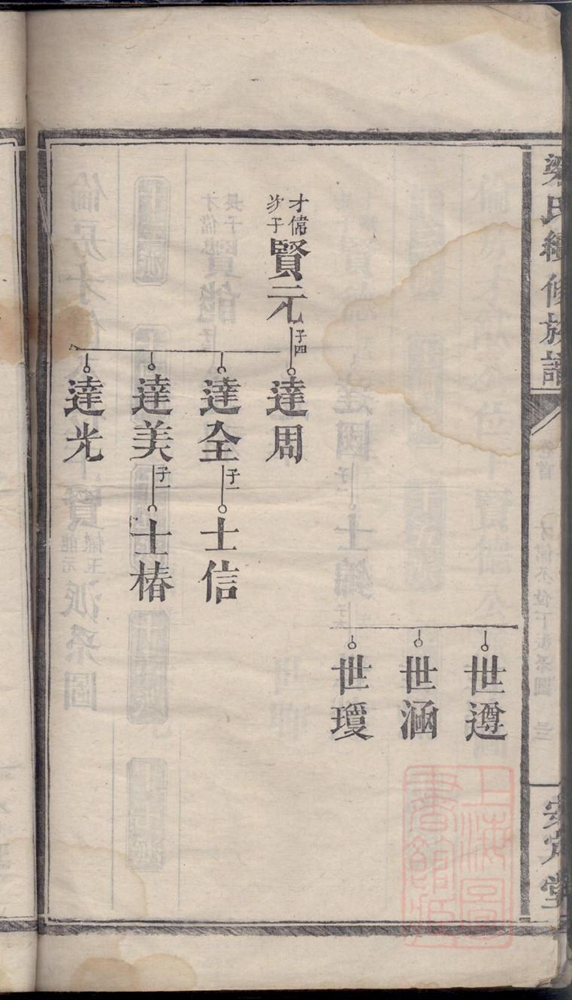 梁氏續修族譜
安定堂
世遵
世涵
世瓊
才偹
次子
賢元
子四
達周
達全
子一
士信
達美
子一
士椿
達光